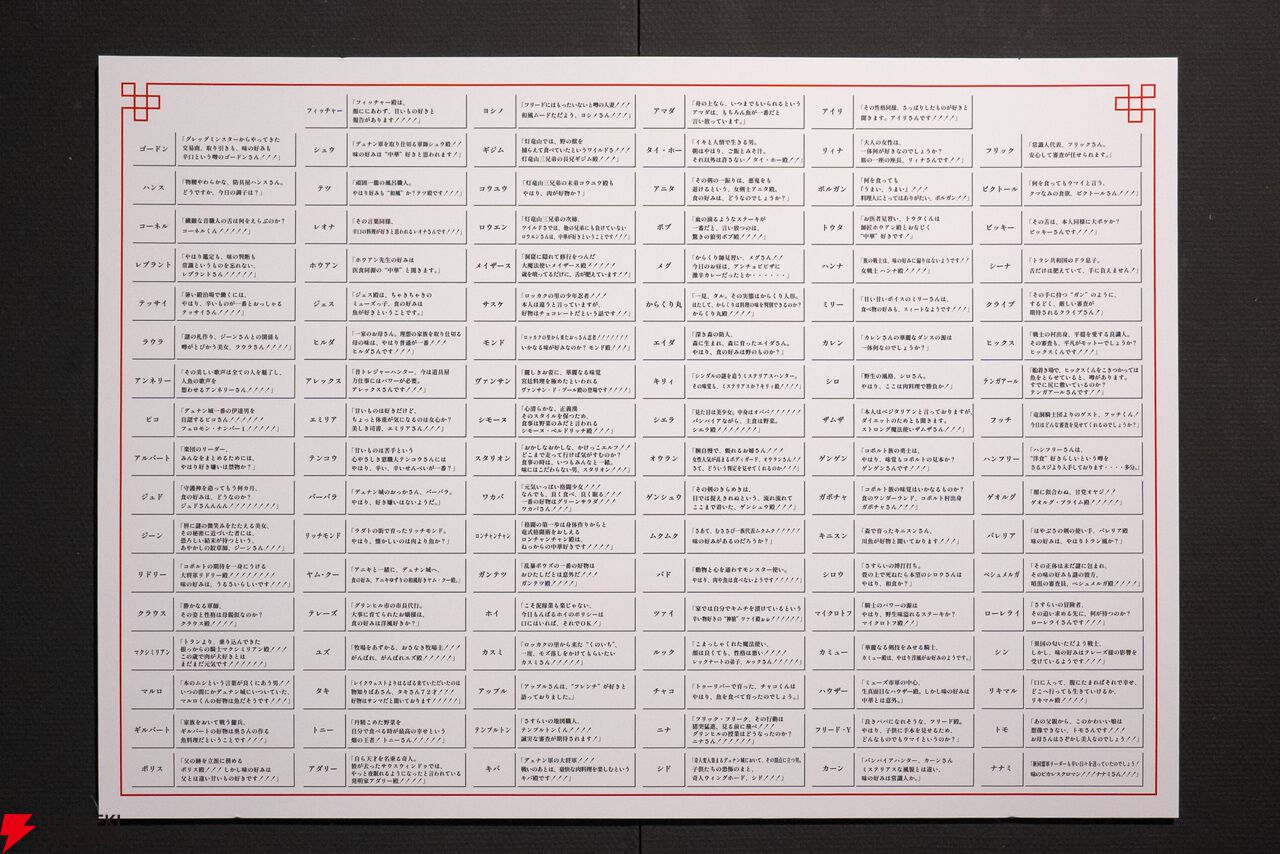 フィッチャー
「フィッチャー殿は、
顔ににあわず、甘いもの好きと
報告があります！！！！」
ヨシノ
「フリードにはもったいないと噂の人妻！！！
和風ムードただよう、ヨシノさん！！」
アマダ
「舟の上なら、いつまでもいられるという
アマダは、もちろん魚が一番だと
言い放っています。」
アイリ
「その性格同様、さっぱりしたものが好きと
聞きます。アイリさんです！！！！」
ゴードン
「グレッグミンスターからやってきた
交易商、取り引きも、味の好みも
辛口という噂のゴードンさん！！！」
シュウ
「デュナン軍を取り仕切る軍師シュウ殿！！
味の好みは“中華”好きと思われます！」
ギジム
「灯竜山では、野の獣を
捕らえて食べていたというワイルドさ！！
灯竜山三兄弟の長兄ギジム殿！！！」
タイ・ホー
「イキと人情で生きる男。
朝はやはり、ご飯とみそ汁。
それ以外は許さない！タイ・ホー殿！！」
リィナ
「大人の女性は、
一体何が好きなのでしょうか？
旅の一座の座長、リィナさんです！！」
フリック
「常識人代表、フリックさん。
安心して審査が任せられます。」
ハンス
「物腰やわらかな、防具屋ハンスさん。
どうですか、今日の調子は？」
テツ
「頑固一徹の風呂職人。
やはり好みも“和風”か？テツ殿です！！！」
コウユウ
「灯竜山三兄弟の末弟コウユウ殿も
やはり、肉が好物か？」
アニタ
「その剣の一振りは、悪鬼をも
退けるという、女剣士アニタ殿。
食の好みは、どうなのでしょうか？」
ボルガン
「何を食っても
『うまい、うまい』！！！
料理人にとってはありがたい、ボルガン！！」
ビクトール
「何を食ってもウマイと言う、
タマなみの食欲、ビクトールさん！！！」
コーネル
「繊細な音職人の舌は何をえらぶのか？
コーネルくん！！！！！」
レオナ
「その言葉同様、
辛口の料理が好きと思われるレオナさんです！！」
ロウエン
「灯竜山三兄弟の次姉、
ワイルドさでは、他の兄弟にも負けていない
ロウエンさんは、中華が好きということです！！」
ボブ
「血の滴るようなステーキが
一番だと、言い放つのは、
驚きの狼男ボブ殿！！！！」
トウタ
「お医者見習い、トウタくんは
師匠ホウアン殿とおなじく
“中華”好きです！」
ビッキー
「その舌は、本人同様に大ボケか？
ビッキーさんです！！！」
レブラント
「やはり鑑定も、味の判断も
常識というものを忘れない、
レブラントさん！！！！！」
ホウアン
「ホウアン先生の好みは
医食同源の“中華”と聞きます。」
メイザース
「洞窟に隠れて修行をつんだ
大魔法使いメイザース殿！！！！！
歳を喰ってるだけに、舌が肥えています！」
メグ
「からくり師見習い、メグさん！！
今日のお昼は、アンチョビピザに
激辛カレーだったとか・・・・・・」
ハンナ
「旅の戦士は、味の好みに偏りはないようです！！
女戦士 ハンナ殿！！！！」
シーナ
「トラン共和国のドラ息子、
舌だけは肥えていて、手に負えません！」
テッサイ
「暑い鍛治場で働くには、
やはり、辛いものが一番とおっしゃる
テッサイさん！！！！」
ジェス
「ジェス殿は、ちゃきちゃきの
ミューズっ子、食の好みは
魚が好きということです。」
サスケ
「ロッカクの里の少年忍者！！！
本人は違うと言っていますが、
好物はチョコレートだという話です！」
からくり丸
「一見、タル。その実態はからくり人形。
はたして、からくりは料理の味を判別できるのか？
からくり丸殿！！！！」
ミリー
「甘い甘いボイスのミリーさんは、
食べ物の好みも、スィートなようです！！！」
クライブ
「その手に持つ“ガン”のように、
するどく、厳しい審査が
期待されるクライブさん！」
ラウラ
「謎の札作り、ジーンさんとの関係も
噂がとびかう美女、ラウラさん！！！！」
ヒルダ
「一家のお母さん。理想の家族を取り仕切る
母の味は、やはり普通が一番！！
ヒルダさんです！！！」
モンド
「ロッカクの里から来たおっさん忍者！！！！！
いかなる味が好みなのか？ モンド殿！！！」
エイダ
「深き森の防人。
森に生まれ、森に育ったエイダさん。
やはり、食の好みは野のものか？」
カレン
「カレンさんの華麗なダンスの源は
一体何なのでしょうか？」
ヒックス
「戦士の村出身、平穏を愛する良識人。
その審査も、平凡がモットーでしょうか？
ヒックスくんです！！！」
アンネリー
「その美しい歌声は全ての人を魅了し、
人魚の歌声を
想わせるアンネリーさん！！！！」
アレックス
「昔トレジャーハンター、今は道具屋
力仕事にはパワーが必要。
アレックスさんです！！！！」
ヴァンサン
「麗しきお姿に、華麗なる味覚
宮廷料理を極めたといわれる
ヴァンサン・ド・ブール殿の登場です！！！！」
キリィ
「シンダルの謎を追うミステリアスハンター。
その味覚も、ミステリアスか？キリィ殿！！！！」
シロ
「野生の風格、シロさん。
やはり、ここは肉料理で勝負か！」
テンガアール
「船着き場で、ヒックスくんをこきつかっては
魚をとらせていると、噂があります。
すでに尻に敷いているのか？
テンガアールさんです！！！」
ピコ
「デュナン城一番の伊達男を
自認するピコさん！！！！！
フェロモン・ナンバー１！！！！！」
エミリア
「甘いものは好きだけど、
ちょっと体重が気になるのは女心か？
美しき司書、エミリアさん！！！」
シモーヌ
「心清らかな、正義漢
そのスタイルを保つため、
食事は野菜のみだと言われる
シモーヌ・ベルドリッチ殿！！！」
シエラ
「見た目は美少女。中身はオババ！！！！！
バンパイアながら、主食は野菜。
シエラ殿！！！！！！」
ザムザ
「本人はベジタリアンと言っておりますが、
ダイエットのためとも聞きます。
ストロング魔法使いザムザさん！！！」
フッチ
「竜洞騎士団よりのゲスト、フッチくん！
今日はどんな審査を見せてくれるのでしょうか？」
アルバート
「楽団のリーダー、
みんなをまとめるためには、
やはり好き嫌いは禁物か？」
テンコウ
「甘いものは苦手という
心やさしき窓職人テンコウさんには
やはり、辛い、辛いせんべいが一番？」
スタリオン
「おかしなおかしな、かけっこエルフ！！
どこまで走って行けば気がすむのか？
食事の時は、いつもみんなと一緒。
味にはこだわらない男、スタリオン！」
オウラン
「腕自慢で、頼れるお姉さん！！！
女性人気が高まるボディガード、オウランさん！！
さて、どういう判定を見せてくれるのか！！」
ゲンゲン
「コボルト族の勇士は、
やはり、味覚もコボルトの見本か？
ゲンゲンさんです！！！」
ハンフリー
「ハンフリーさんは、
“洋食”好きらしいという噂を
さるスジより入手しております・・・・多分」
ジュド
「守護神を造ってもう何カ月、
食の好みは、どうなのか？
ジュドさんんんん！！！！！！」
バーバラ
「デュナン城のおっかさん、バーバラ。
やはり、好き嫌いはないようだ。」
ワカバ
「元気いっぱい格闘少女！！！
なんでも、良く食べ、良く眠る！！！
一番の好物はグリーンサラダ！！！
ワカバさん！！！」
ゲンシュウ
「その剣のきらめきは、
目では捉えきれぬという、流れ流れて
ここまで着いた、ゲンシュウ殿！！！」
ガボチャ
「コボルト族の味覚はいかなるものか？
食のワンダーランド、コボルト村出身
ガボチャさん！！！」
ゲオルグ
「顔に似合わぬ、甘党オヤジ！！
ゲオルグ・プライム殿！！！！！！」
ジーン
「唇に謎の微笑みをたたえる美女、
その秘密に近づいた者には、
恐ろしい結末が待つという、
あやかしの紋章師、ジーンさん！！！」
リッチモンド
「ラダトの街で育ったリッチモンド。
やはり、懐かしいのは肉より魚か？」
ロンチャンチャン
「格闘の第一歩は身体作りからと
竜式格闘術をおしえる
ロンチャンチャン殿は、
ねっからの中華好きです！！！！」
ムクムク
「さあて、むささび一族代表ムクムク！！！！！！
味の好みがあるのだろうか？」
キニスン
「森で育ったキニスンさん、
川魚が好物と聞いております！！！！」
バレリア
「はやぶさの剣の使い手、バレリア殿
味の好みは、やはりトラン風か？」
リドリー
「コボルトの期待を一身にうける
大将軍リドリー殿！！！！！！！！
味の好みは、うるさいらしいです！！！」
ヤム・クー
「アニキと一緒に、デュナン城へ。
食の好み、アニキゆずりの和風好きヤム・クー殿。」
ガンテツ
「乱暴ボウズの一番の好物は
おひたしだとは意外だ！！！
ガンテツ殿！！！！」
バド
「動物と心を通わすモンスター使い。
やはり、肉や魚は食べないようです！！！！！」
シロウ
「さすらいの博打打ち。
畳の上で死ねたら本望のシロウさんは
やはり、和食か？」
ペシュメルガ
「その正体は未だ謎に包まれ、
その味の好みも謎の彼方、
暗黒の審査員、ペシュメルガ殿！！！！」
クラウス
「静かなる軍師、
その姿と性格は母親似なのか？
クラウス殿！！！！」
テレーズ
「グリンヒル市の市長代行。
大事に育てられたお嬢様は、
食の好みは洋風好きか？」
ホイ
「こそ泥稼業も楽じゃない、
今日もんばるホイのポリシーは
口にはいれば、それでOK！」
ツァイ
「家では自分でキムチを漬けているという
辛い物好きの“神槍”ツァイ殿ぉぉ！！！！！！」
マイクロトフ
「騎士のパワーの源は
やはり、野生味溢れるステーキか？
マイクロトフ殿！！」
ローレライ
「さすらいの冒険者、
その追い求める先に、何が待つのか？
ローレライさんです！！！」
マクシミリアン
「トランより、乗り込んできた
根っからの騎士マクシミリアン殿！！！
この歳で肉が大好きとは
まだまだ元気です！！！！！！」
ユズ
「牧場をあずかる、おさなき牧場主！！！
がんばれ、がんばれユズ殿！！！！！」
カスミ
「ロッカクの里から来た“くのいち”、
一度、モズ落しをかけてもらいたい
カスミさん！！！！！」
ルック
「こまっしゃくれた魔法使い、
顔は良くても、性格は悪い！！！！
レックナートの弟子、ルックさん！！！！！」
カミュー
「華麗なる剣技をみせる騎士、
カミュー殿は、やはり洋風がお好みのようです。」
シン
「異国の匂いただよう戦士、
しかし、味の好みはテレーズ様の影響を
受けているようです！！！」
マルロ
「本のムシという言葉が良くにあう男！！
いつの間にかデュナン城についていた、
マルロくんの好物は魚だそうです！！！」
タキ
「レイクウェストよりはるばる来ていただいたのは
物知りばあさん、タキさん７２才！！！
好物はサンマだと聞いております！！！！！」
アップル
「アップルさんは、“フレンチ”が好きと
語っておりました。」
チャコ
「トゥーリバーで育った、チャコくんは
やはり、魚を食べて育ったのでしょう。」
ハウザー
「ミューズ市軍の中心、
生真面目なハウザー殿。しかし味の好みは
中華とは意外。」
リキマル
「口に入って、腹にたまればそれで幸せ、
どこへ行っても生きていけるか、
リキマル殿！！！！」
ギルバート
「家族をおいて戦う傭兵、
ギルバートの好物は奥さんの作る
魚料理だということです！」
トニー
「丹精こめた野菜を
自分で食べる時が最高の幸せという
畑の王者！トニーさん！！！！！」
テンプルトン
「さすらいの地図職人。
テンプルトンくん！！！！
誠実な審査が期待されます！」
ニナ
「フリック・フリーク、その行動は
猪突猛進、見る前に飛べ！！！
グリンヒルの授業はどうなったのか？
ニナさん！！！！！！」
フリード・Y
「良きパパになれそうな、フリード殿。
やはり、子供に手本を見せるため、
どんなものでもウマイというのか？」
トモ
「あの父親から、このかわいい娘は
想像できない、トモさんです！！
お母さんはさぞかし美人なのでしょう！」
ボリス
「父の跡を立派に務める
ボリス殿！！！しかし味の好みは
父とは違い甘いもの好きです！」
アダリー
「自ら天才を名乗る奇人。
彼が去ったサウスウィンドゥでは、
やっと夜眠れるようになったと言われている
発明家アダリー殿！！！！」
キバ
「デュナン軍の大将軍！！！
戦いのあとは、豪快な肉料理を楽しむという
キバ殿です！！！」
シド
「奇人変人集まるデュナン城において、その頂点に立つ男。
子供たちの恐怖のまと、
奇人ウィングホード、シド！！！」
カーン
「バンパイアハンター、カーンさん
ミステリアスな風貌とは違い、
味の好みは常識人か。」
ナナミ
「新同盟軍リーダーも辛い日々を送っていたのでしょう！
味のピカレスクロマン！！！！ナナミさん！！！」